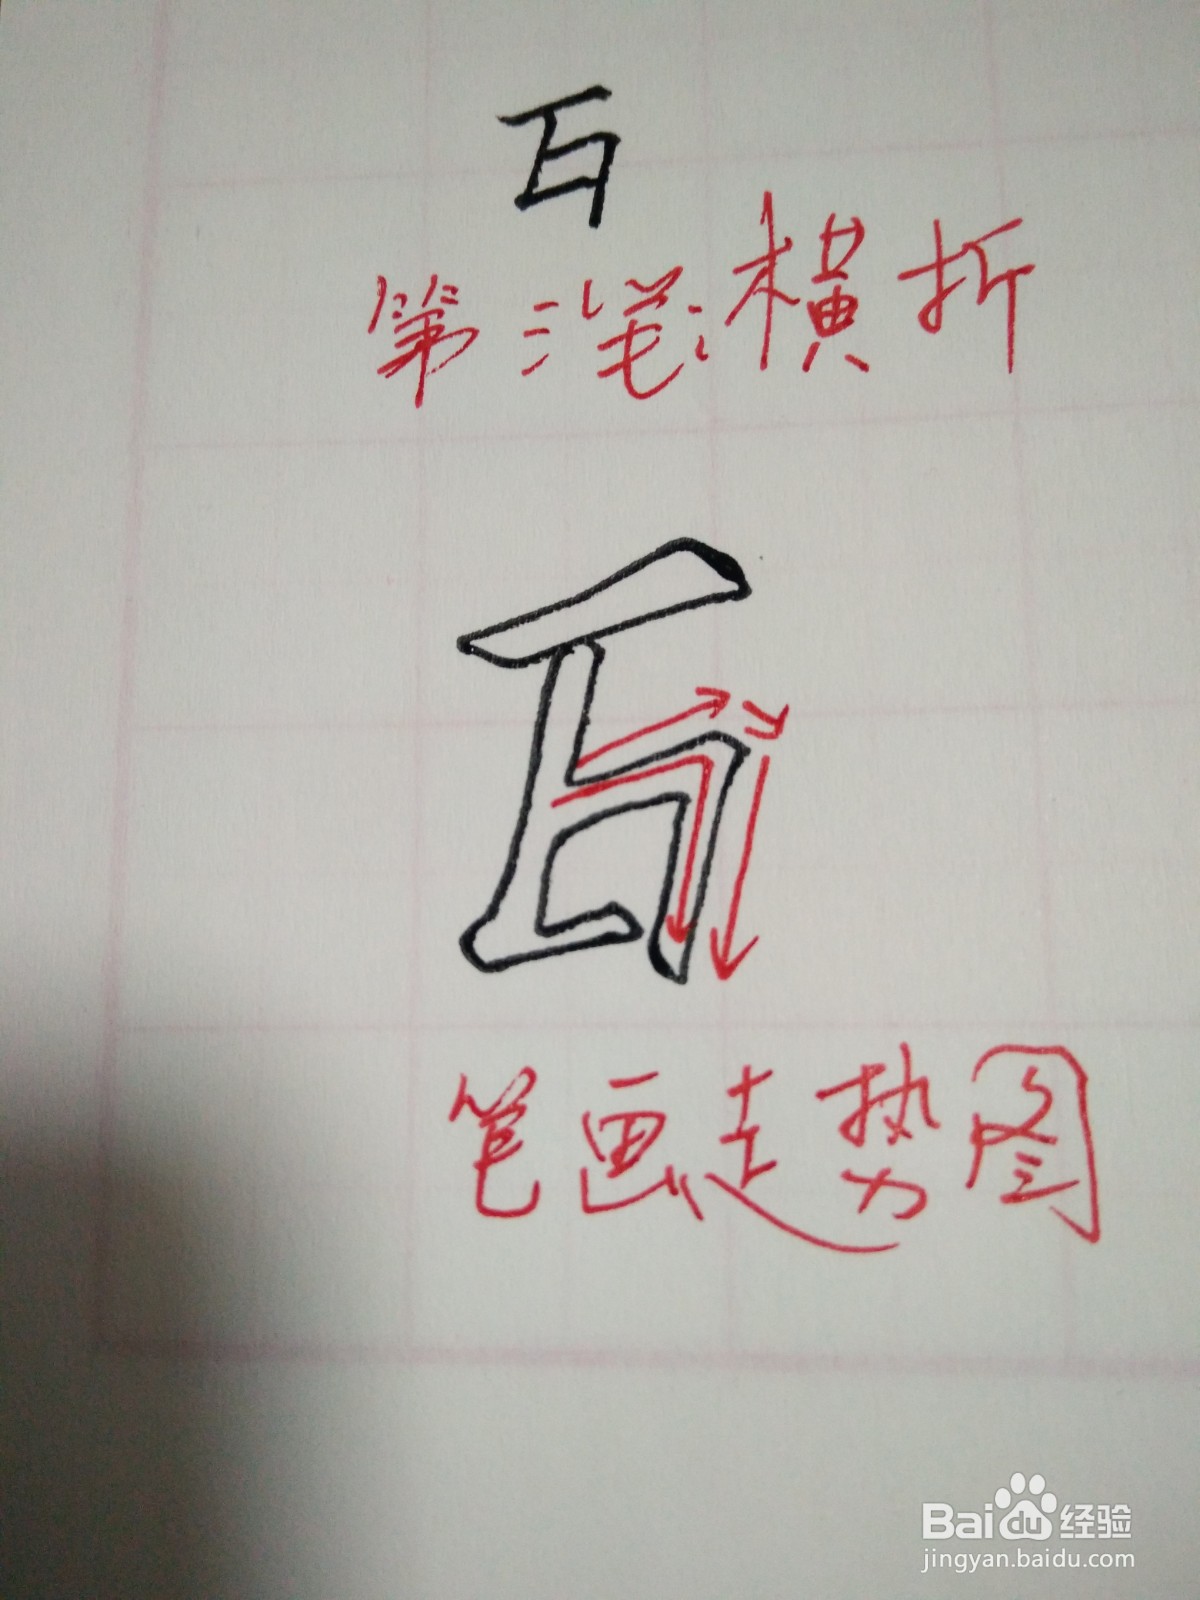 第三笔:横折
笔画走势图
Baidu经验
jingyan.baidu.com